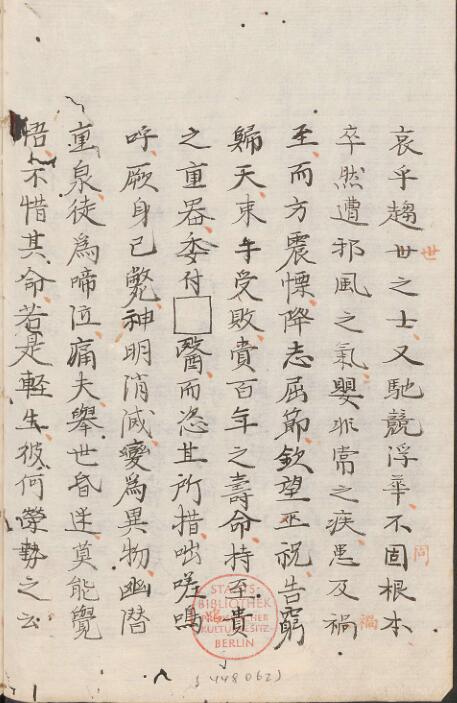 哀乎趨世之士又馳競浮華不固根本
世
卒然遭邪風之氣嬰非常之疾患及禍
禍
至而方震慄降志屈節欽望巫祝告窮
歸天束手受敗賞百年之壽命持至貴
之重器委付□醫而恣其所措咄嗟嗚
呼厥身已斃神明消滅變為異物幽潛
重泉徒為啼泣痛夫舉世昏迷莫能覺
悟不惜其命若是輕生彼何榮勢之云
STAATS-
BIBLIOTHEK
KULTURBESITZ
BERLIN
448062